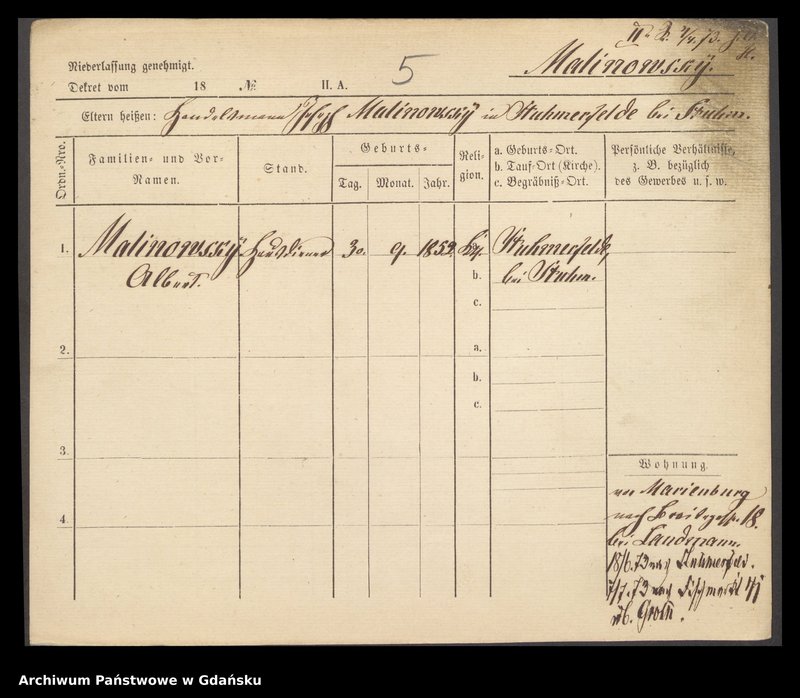 Niederlassung genehmigt.
5
Malinowsky.
Dekret vom 18 № II. A.
Eltern heißen: Handelsmann Joseph Malinowsky in Stuhmerfelde bei Stuhm.
Ordn.-Nro.
Familien- und Vor-
Namen.
Stand.
Geburts-
Tag. Monat. Jahr.
Reli-
gion.
a. Geburts-Ort.
b. Tauf-Ort (Kirche).
c. Begräbniß-Ort.
Persönliche Verhältnisse,
z. B. bezüglich
des Gewerbes u. s. w.
1. Malinowsky Hausdiener 30. 9. 1852. a. Stuhmerfelde,
Albert. b. bei Stuhm.
c.
2. a.
b.
c.
3.
4.
Wohnung.
von Marienburg
nach 18.
bei Landmann.
18/6.73 nach Stuhmerfelde.
7/7.73 nach Fischmarkt
Groth.
Archiwum Państwowe w Gdańsku